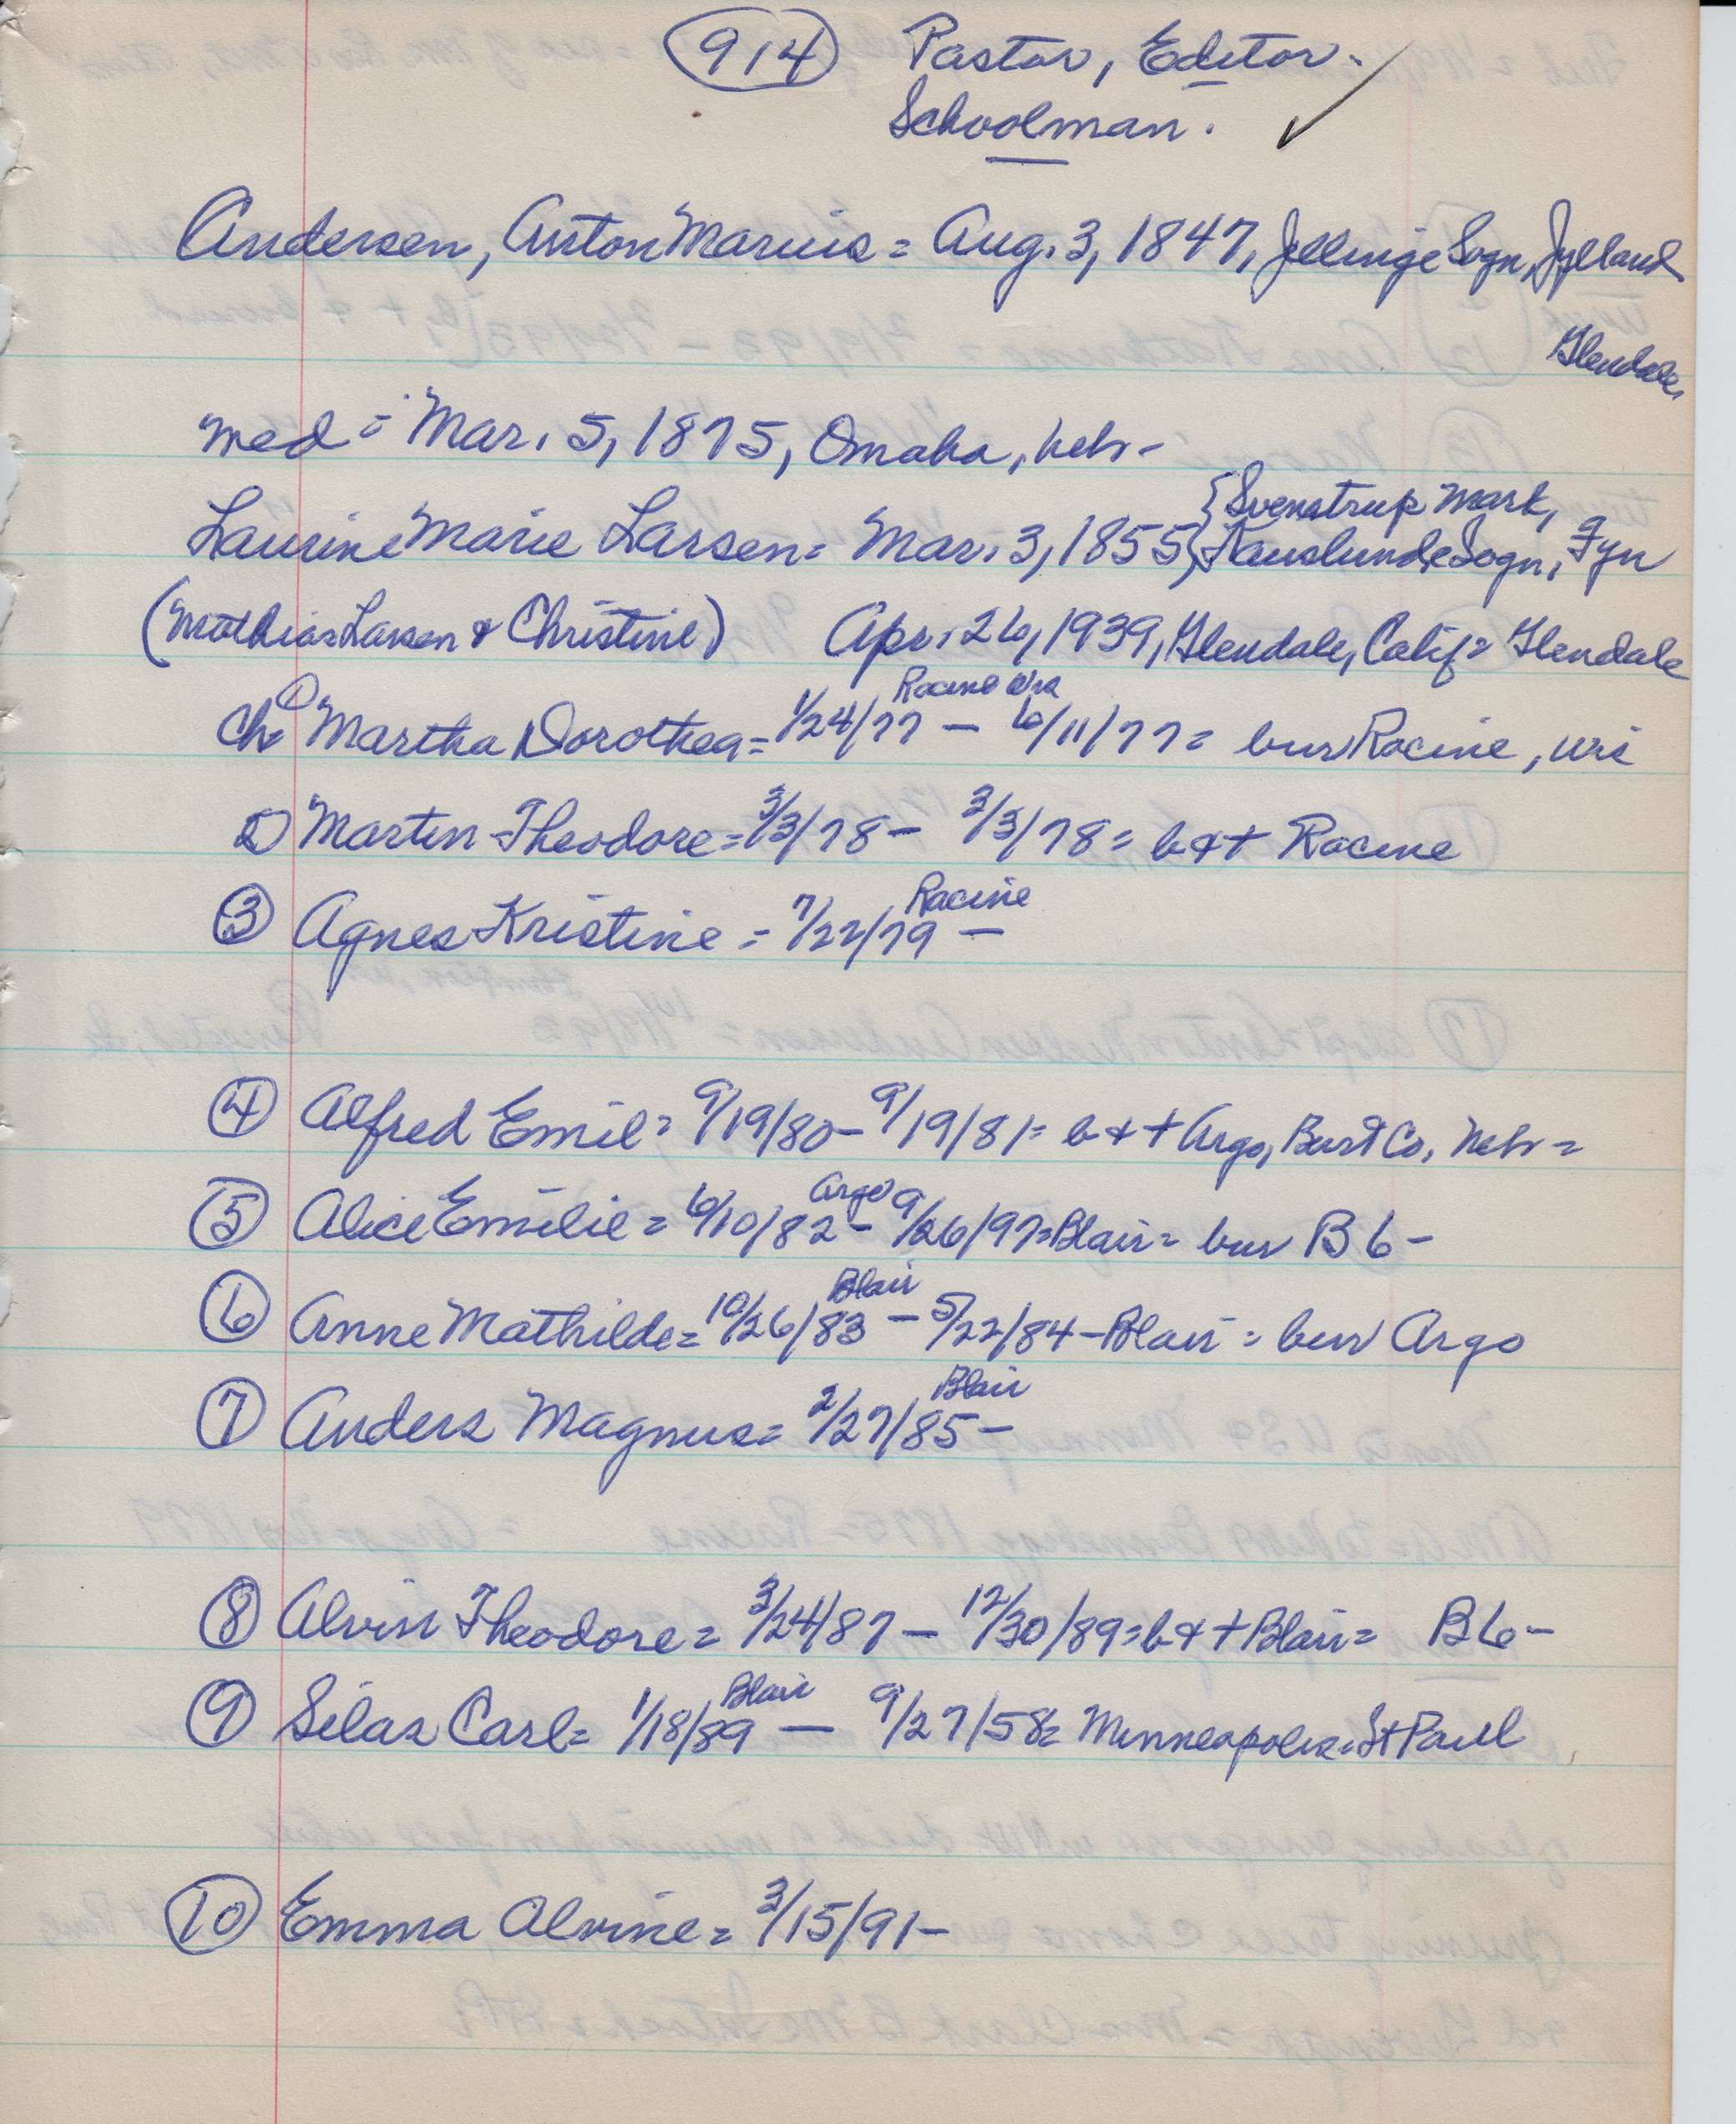 914 Pastor, Editor.
Schoolman.
Andersen, Anton Marius = Aug. 3, 1847, Jellinge Sogn, Jylland
Glendale,
med = Mar. 5, 1875, Omaha, Nebr -
{Svenstrup Mark,
Laurine Marie Larsen = Mar. 3, 1855, {Kauslunde Sogn, Fyn
(Mathias Larsen & Christine) Apr. 26, 1939, Glendale, Calif = Glendale
Racine Wis
ch ① Martha Dorothea = 1/24/77 - 6/11/77 = bur Racine, Wis
2) Martin Theodore = 3/3/78 - 3/3/78 = b & + Racine
Racine
③ Agnes Kristine = 7/22/79 -
④ Alfred Emil = 9/19/80 - 9/19/81 = b & + Argo, Burt Co, Nebr =
Argo
⑤ Alice Emilie = 6/10/82 - 9/26/97 = Blair = bur B 6 -
Blair
⑥ Anne Mathilde = 10/26/83 - 5/22/84 - Blair = bur Argo
Blair
⑦ Anders Magnus = 2/27/85 -
⑧ Alvin Theodore = 3/24/87 - 12/30/89 = b & + Blair = B 6 -
Blair
⑨ Silas Carl = 1/18/89 - 9/27/58 = Minneapolis = St Paul
⑩ Emma Alvine = 3/15/91 -